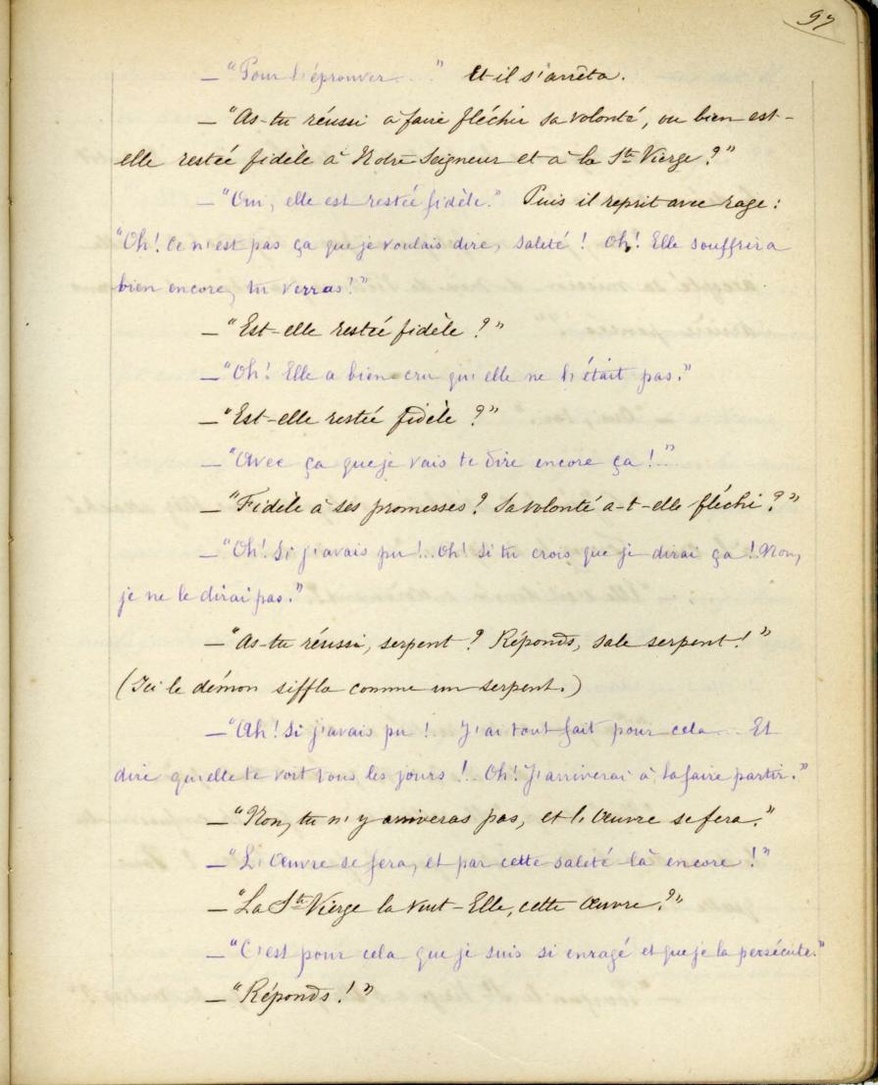 97
—"Pour l'éprouver...." Et il s'arrêta.
—"As-tu réussi à faire fléchir sa volonté, ou bien est-
elle restée fidèle à Notre Seigneur et à la Ste Vierge ?"
—"Oui, elle est restée fidèle." Puis il reprit avec rage :
"Oh! Ce n'est pas ça que je voulais dire, saleté ! Oh! Elle souffrira
bien encore, tu verras !"
—"Est-elle restée fidèle ?"
—"Oh! Elle a bien cru qu'elle ne l'était pas."
—"Est-elle restée fidèle ?"
—"Avec ça que je vais te dire encore ça !..."
—"Fidèle à ses promesses ? Sa volonté a-t-elle fléchi ?"
—"Oh! Si j'avais pu !.. Oh! Si tu crois que je dirai ça !. Non,
je ne le dirai pas."
—"As-tu réussi, serpent ? Réponds, sale serpent !"
(Ici le démon siffla comme un serpent.)
—"Ah! Si j'avais pu ! J'ai tout fait pour cela.... Et
dire qu'elle te voit tous les jours !.. Oh! J'arriverai à la faire partir."
—"Non, tu n'y arriveras pas, et l'Œuvre se fera."
—"L'Œuvre se fera, et par cette saleté là encore !"
—"La Ste Vierge la veut-Elle, cette Œuvre ?"
—"C'est pour cela que je suis si enragé et que je la persécute."
—"Réponds !"